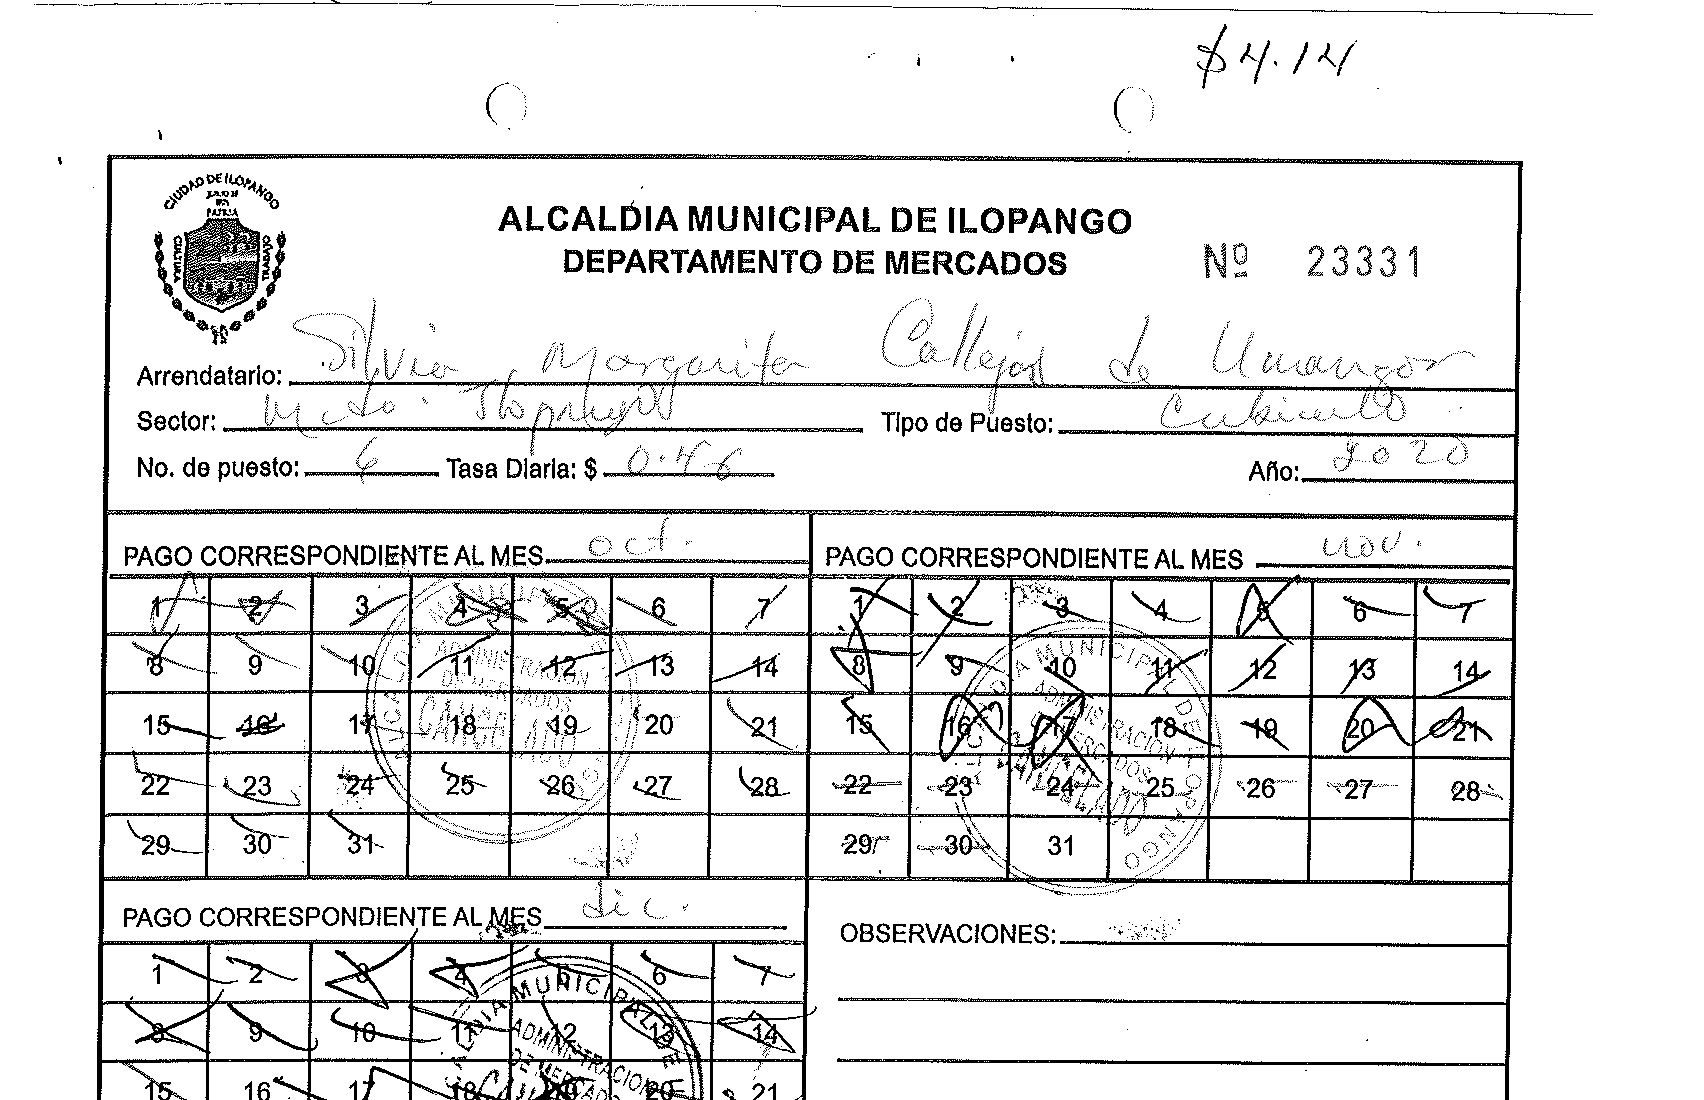 $4.14
CIUDAD DE ILOPANGO
PATRIA
CULTURA
TRABAJO
ALCALDÍA MUNICIPAL DE ILOPANGO
DEPARTAMENTO DE MERCADOS
Nº 23331
Arrendatario: Silvia Margarita Callejas de Umanzor
Sector: Mcdo. Ilopango Tipo de Puesto: Cubiculo
No. de puesto: 6 Tasa Diaria: $ 0.46 Año: 2020
PAGO CORRESPONDIENTE AL MES oct. PAGO CORRESPONDIENTE AL MES nov.
1 2 3 4 5 6 7 1 2 3 4 5 6 7
8 9 10 11 12 13 14 8 9 10 11 12 13 14
15 16 17 18 19 20 21 15 16 17 18 19 20 21
22 23 24 25 26 27 28 22 23 24 25 26 27 28
29 30 31 29 30 31
ADMINISTRACION
DE MERCADOS
CANCELADO
ALCALDIA MUNICIPAL DE ILOPANGO
ADMINISTRACION
DE MERCADOS
CANCELADO
PAGO CORRESPONDIENTE AL MES dic. OBSERVACIONES:
1 2 3 4 5 6 7
8 9 10 11 12 13 14
15 16 17 18 19 20 21
ALCALDIA MUNICIPAL DE
ADMINISTRACION
DE MERCADO